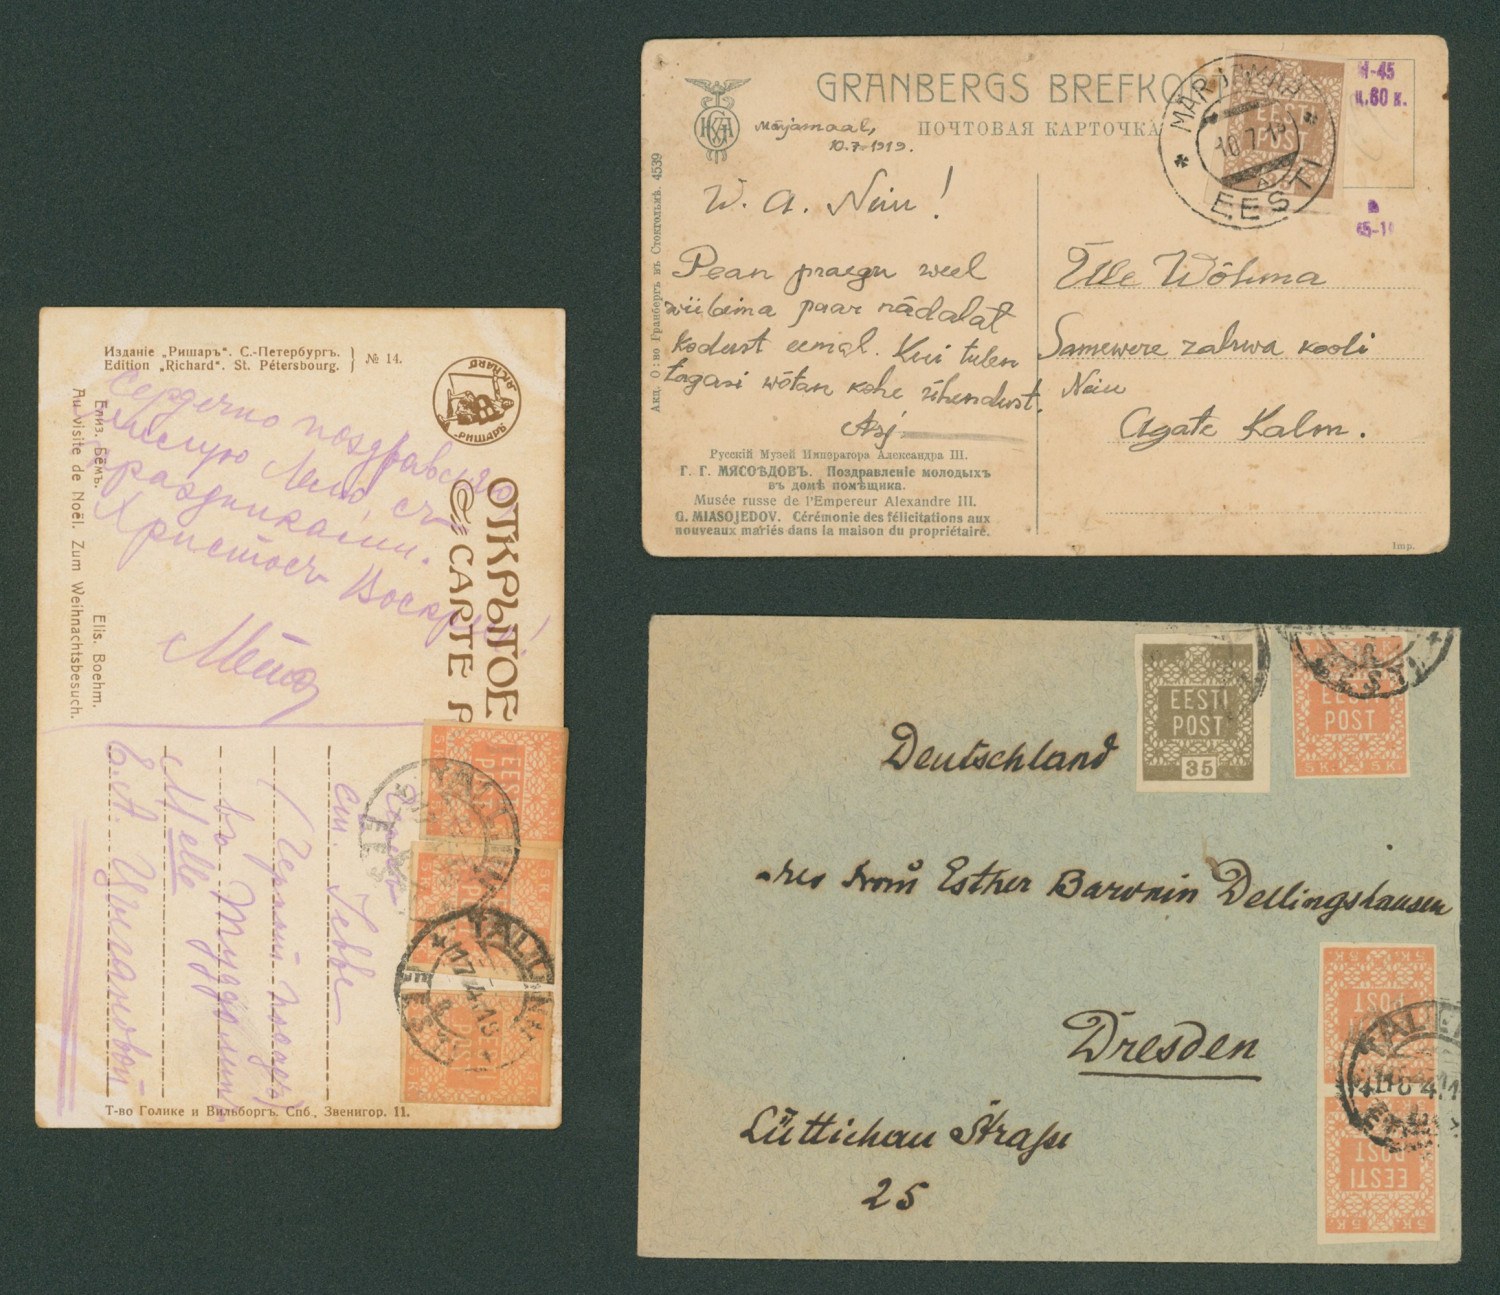 Изданіе „Ришаръ“. С.-Петербургъ.
Edition „Richard“. St. Pétersbourg.
№ 14.
RICHARD
РИШАРЪ
Елиз. Бёмъ.
Elis. Boehm.
Au visite de Noël. Zum Weihnachtsbesuch.
ОТКРЫТОЕ
CARTE P
Сердечно поздравляю
милую Меню, съ
праздниками.
Христосъ Воскресе!
EESTI
POST
5 K
TALLINN
EESTI
17 4 19
Е. А. Цыгановой
M elle
въ
ст.
Т-во Голике и Вильборгъ. Спб., Звенигор. 11.
GRANBERGS BREFKORT
ПОЧТОВАЯ КАРТОЧКА
Märjamaal,
10.7-1919.
MÄRJAMAA
10 7 19
EESTI
EESTI
POST
H-45
ц.60 к.
Акц. О:во Гранбергъ въ Стокгольмѣ. 4539
W. A. Neiu!
Pean praegu weel
wiibima paar nädalat
kodust eemal. Kui tulen
tagasi wõtan kohe ühendust.
Ülle Wõhma
Samewere rahwa kooli
Neiu
Agate Kalm.
Русскій Музей Императора Александра III.
Г. Г. МЯСОѢДОВЪ. Поздравленіе молодыхъ
въ домѣ помѣщика.
Musée russe de l'Empereur Alexandre III.
G. MIASOJEDOV. Cérémonie des félicitations aux
nouveaux mariés dans la maison du propriétaire.
Imp.
EESTI
POST
35
EESTI
POST
5 K. 5 K.
EESTI
Deutschland
Esther Baronin Dellingshausen
Dresden
Lüttichau Straße
25
5 K. 5 K.
EESTI
POST
TALLINN
EESTI
POST
5 K. 5 K.